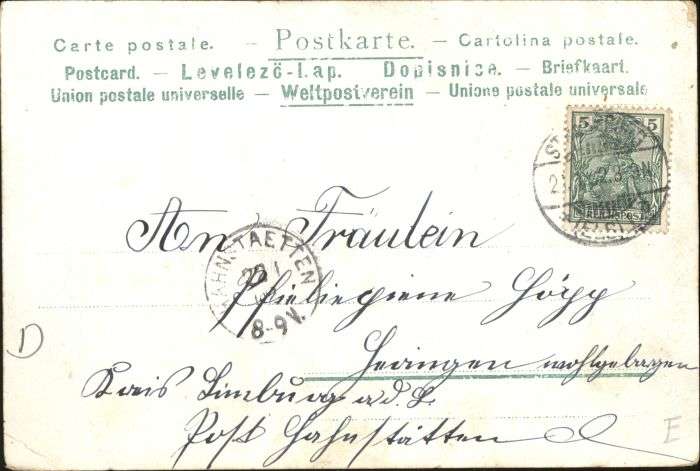 Carte postale. – Postkarte. – Cartolina postale.
Postcard. – Levelező-Lap. Dopisnice. – Briefkaart.
Union postale universelle – Weltpostverein – Unione postale universale
5 5
An Fräulein
HAHNSTAETTEN
8-9V.
Höpp
Heringen wohlgeboren
Kreis Limburg a.d.L.
Post Hahnstätten
D
E